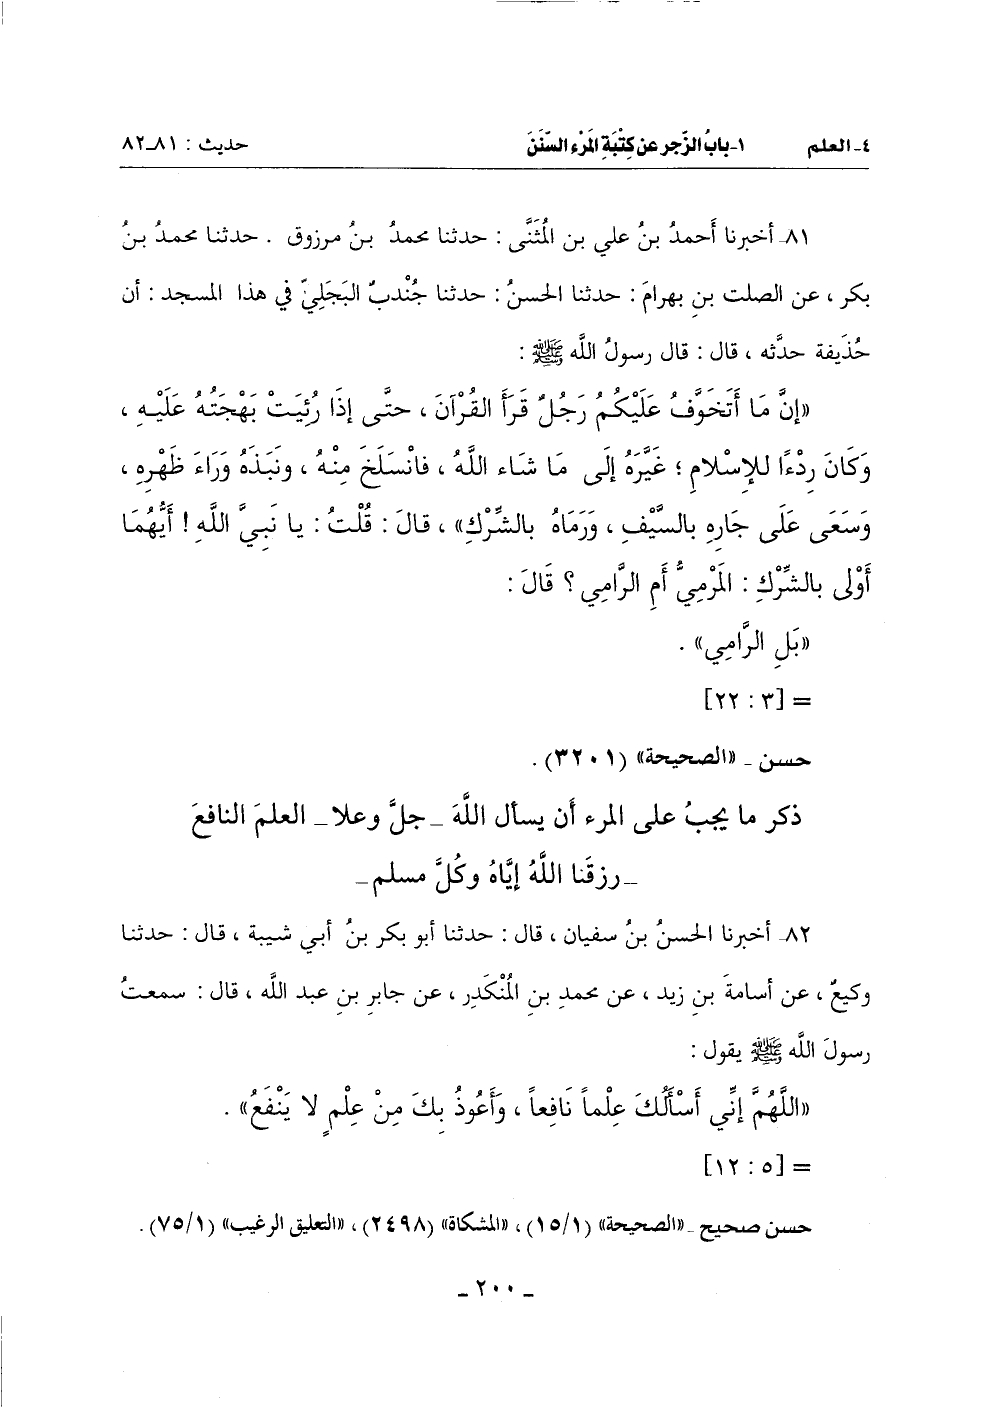 ٤- العلم ١- بابُ الزَّجر عن كِتْبَةِ المَرْء السُّنَنَ حديث : ٨١-٨٢
٨١- أخبرنا أَحمدُ بنُ علي بن المُثَنَّى : حدثنا محمدُ بنُ مرزوق . حدثنا محمدُ بنُ
بكر ، عن الصلت بنِ بهرامَ : حدثنا الحسنُ : حدثنا جُنْدبٌ البَجَليّ في هذا المسجد : أن
حُذَيفة حدَّثه ، قال : قال رسولُ اللَّه ﷺ :
«إنَّ مَا أَتَخَوَّفُ عَلَيْكُمُ رَجُلٌ قَرَأَ القُرْآنَ ، حتَّى إذَا رُئِيَتْ بَهْجَتُهُ عَلَيْهِ ،
وَكَانَ رِدْءًا للإِسْلامِ ؛ غَيَّرَهُ إلَى مَا شَاء اللَّهُ ، فانْسَلَخَ مِنْهُ ، ونَبَذَهُ وَرَاءَ ظَهْرِهِ ،
وَسَعَى عَلَى جَارِهِ بالسَّيْفِ ، وَرَمَاهُ بالشِّرْكِ» ، قالَ : قُلْتُ : يا نَبِيَّ اللَّهِ ! أَيُّهُمَا
أَوْلى بالشِّرْكِ : المَرْمِيُّ أَمِ الرَّامِي ؟ قَالَ :
«بَلِ الرَّامِي» .
= [٣ : ٢٢]
حسن ـ «الصحيحة» (٣٢٠١) .
ذكر ما يجبُ على المرء أن يسأل اللَّهَ ـ جلَّ وعلا ـ العلمَ النافعَ
ـ رزقَنا اللَّهُ إيَّاهُ وكُلَّ مسلم ـ
٨٢- أخبرنا الحسنُ بنُ سفيان ، قال : حدثنا أبو بكر بنُ أبي شيبة ، قال : حدثنا
وكيعٌ ، عن أسامةَ بنِ زيد ، عن محمدِ بنِ المُنْكَدِر ، عن جابرِ بنِ عبد اللَّه ، قال : سمعتُ
رسولَ اللَّه ﷺ يقول :
«اللَّهُمَّ إنِّي أَسْأَلُكَ عِلْماً نَافِعاً ، وَأَعُوذُ بِكَ مِنْ عِلْمٍ لا يَنْفَعُ» .
= [٥ : ١٢]
حسن صحيح ـ «الصحيحة» (١٥/١) ، «المشكاة» (٢٤٩٨) ، «التعليق الرغيب» (٧٥/١) .
ـ ٢٠٠ ـ